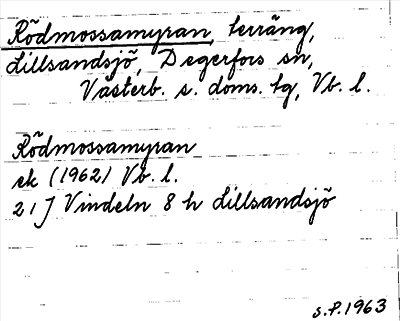 Rödmossamyran, terräng,
Lillsandsjö, Degerfors sn,
Västerb. s. doms. tg, Vb. l.
Rödmossamyran
ek (1962) Vb. l.
21J Vindeln 8 h Lillsandsjö
S.P. 1963